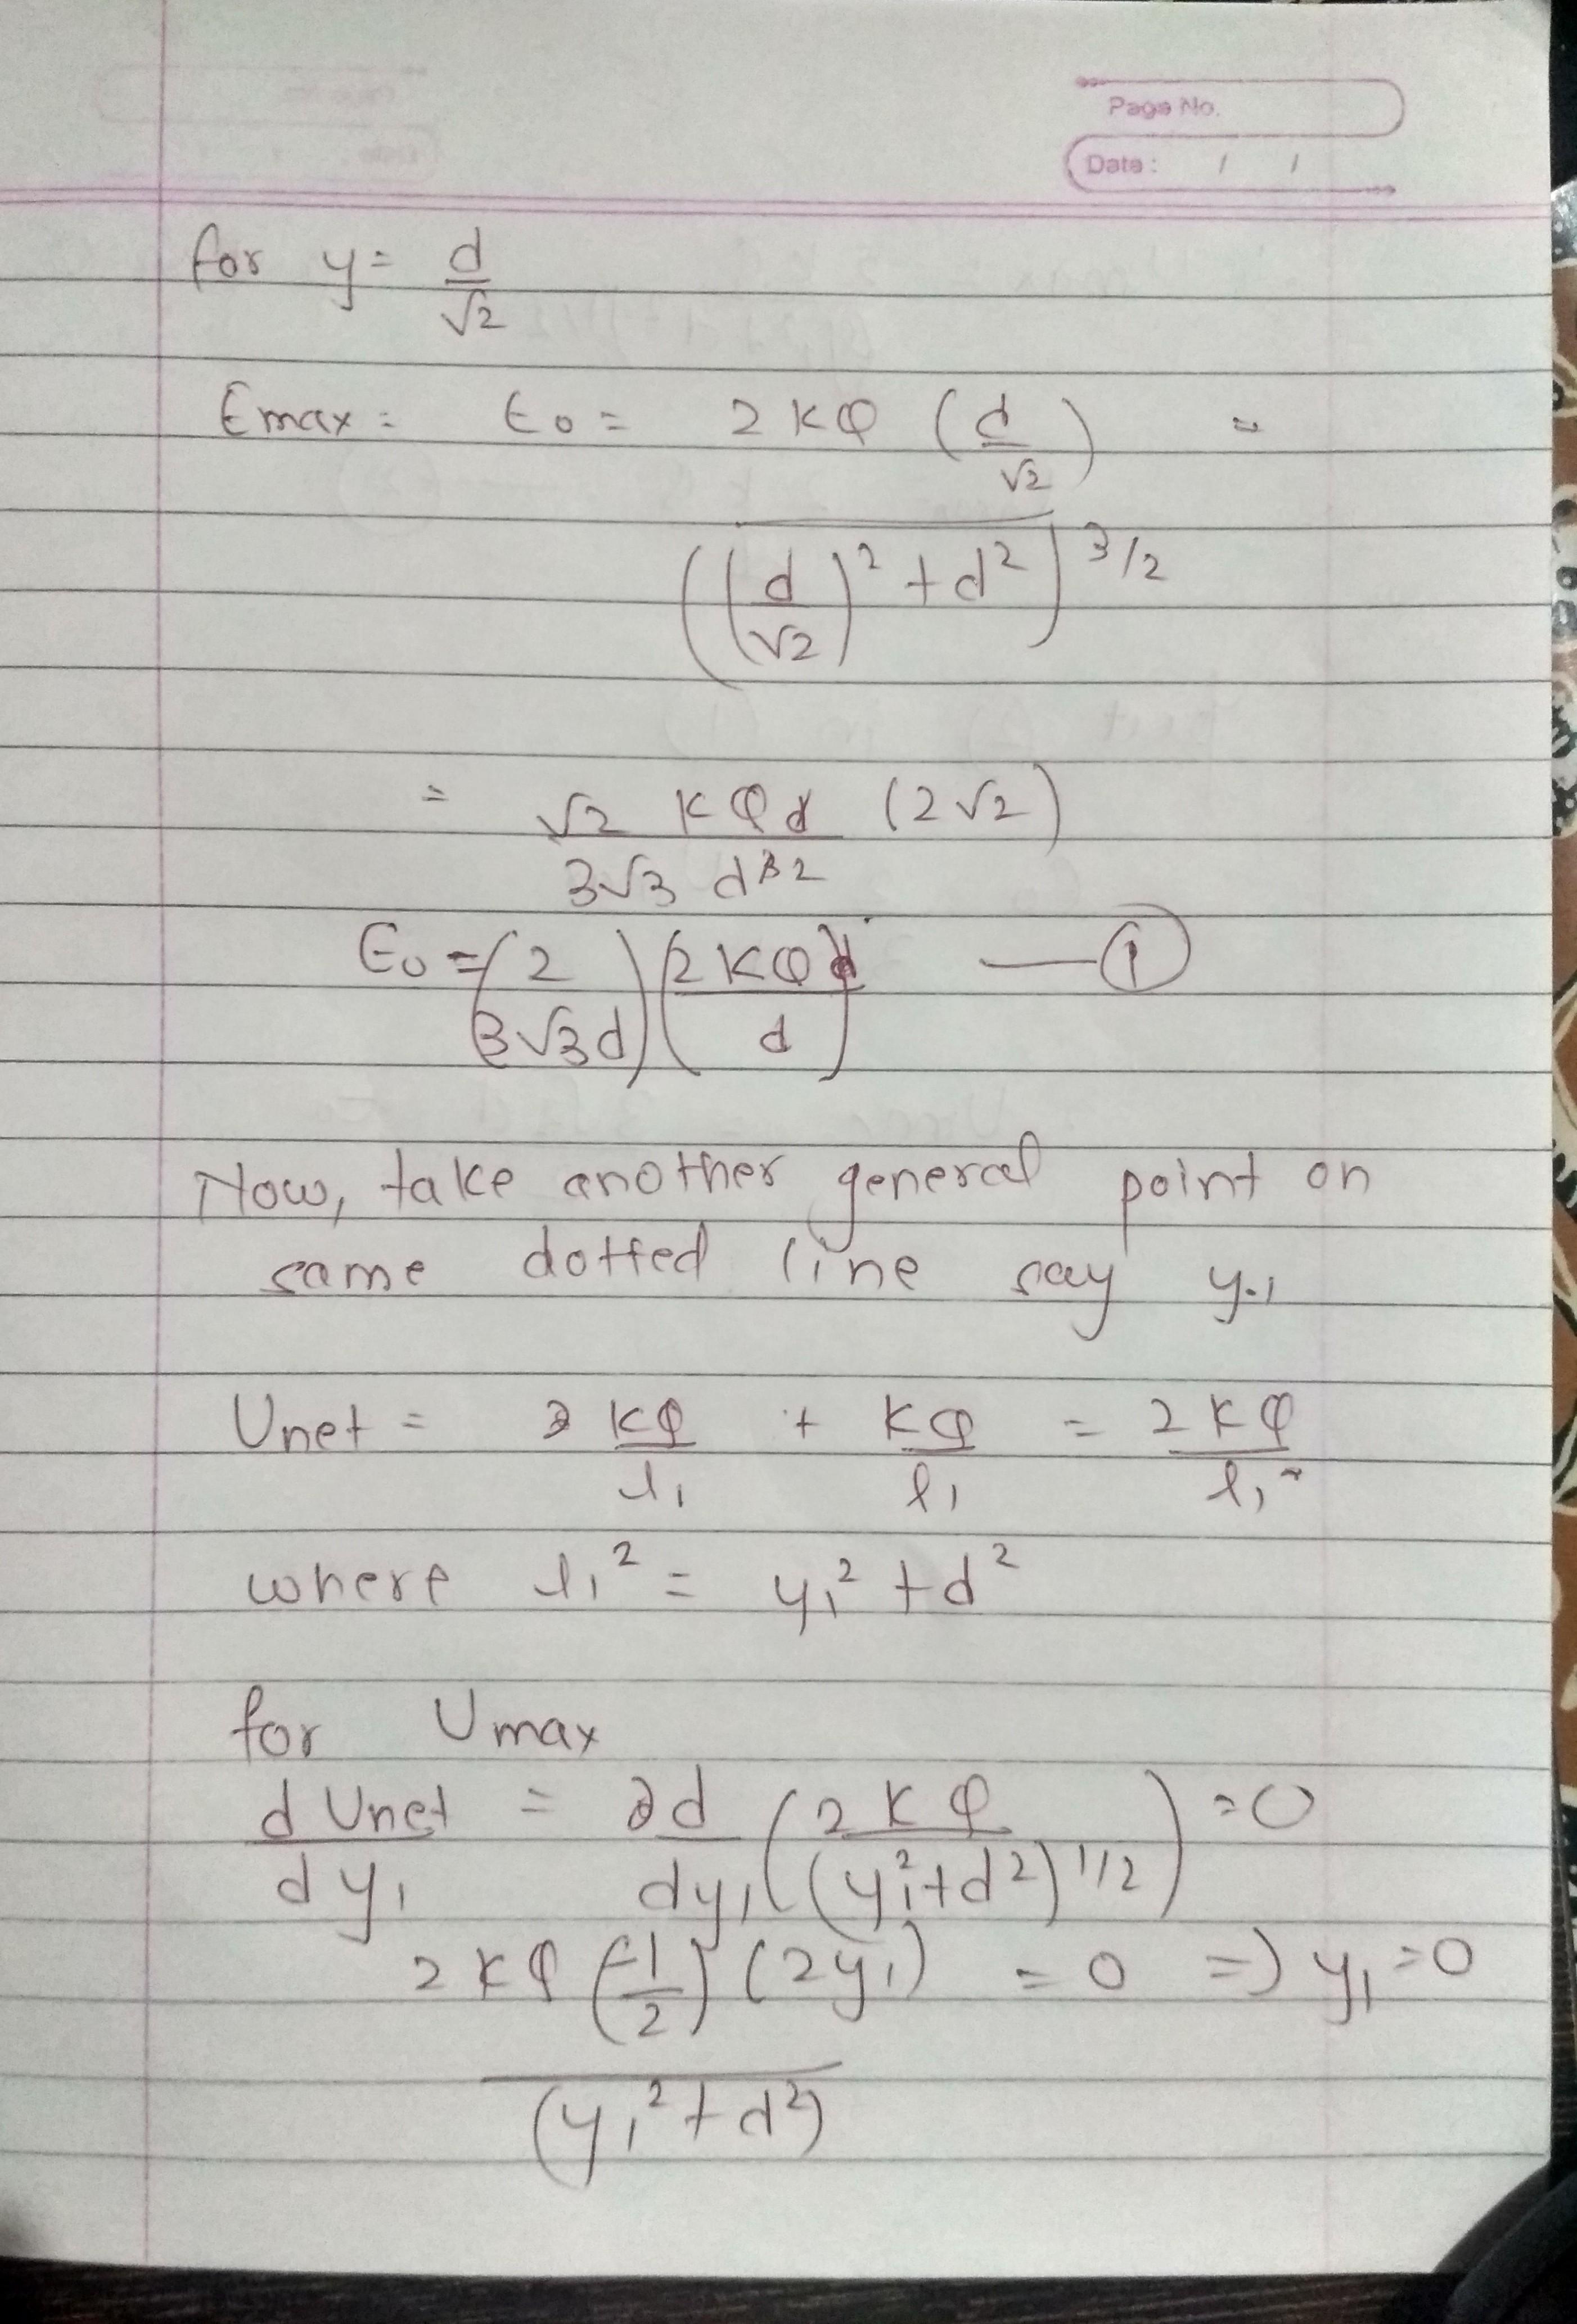 Page No.
Date : / /
for y = d/√2
Emax = E0 = 2KQ (d/√2) =
((d/√2)² + d²)^3/2
= √2 KQd (2√2)
3√3 d³2
E0 = (2/3√3d) (2KQ/d) — ①
Now, take another general point on
same dotted line say y1
Unet = KQ/l1 + KQ/l1 = 2KQ/l1
where l1² = y1² + d²
for Umax
dUnet/dy1 = d/dy1 (2KQ/(y1²+d²)^1/2) = 0
2KQ (-1/2) (2y1) = 0 => y1 = 0
(y1² + d²)